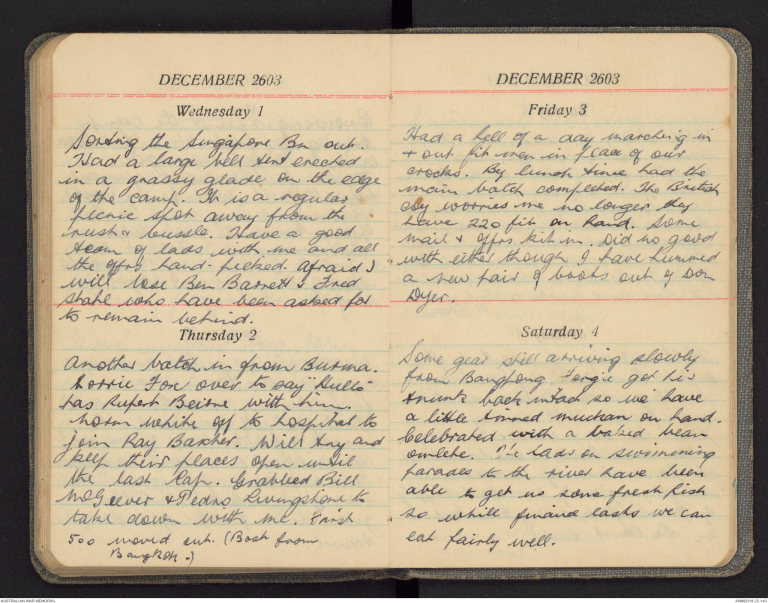 DECEMBER 2603
Wednesday 1
Sorting the Singapore Bn out.
Had a large bell tent erected
in a grassy glade on the edge
of the camp. It is a regular
picnic spot away from the
rush & bussle. Have a good
team of lads with me and all
the offrs hand-picked. Afraid I
will lose Ben Barrett & Fred
Stahl who have been asked for
to remain behind.
Thursday 2
Another batch in from Burma.
Lorrie Fox over to say "Hullo"
has Rupert Beirne with him.
Norm White off to hospital to
join Ray Barber. Will try and
keep their places open until
the last Cap. Grabbed Bill
McGeever & Pedro Livingstone to
take down with me. First
500 moved out. (Back from
Bangkok.)
DECEMBER 2603
Friday 3
Had a hell of a day marching in
& out fit men in place of our
crocks. By lunch time had the
main batch completed. The British
coy worries me no longer they
have 220 fit on hand. Some
mail & offrs kit in. Did no good
with either though I have hummed
a new pair of boots out of Don
Dyer.
Saturday 4
Some gear still arriving slowly
from Bangpong Fergie got his
trunk back intact so we have
a little tinned on hand.
Celebrated with a baked bean
omlette. The lads on swimming
parades to the river have been
able to get us some fresh fish
so while finance lasts we can
eat fairly well.
AUSTRALIAN WAR MEMORIAL